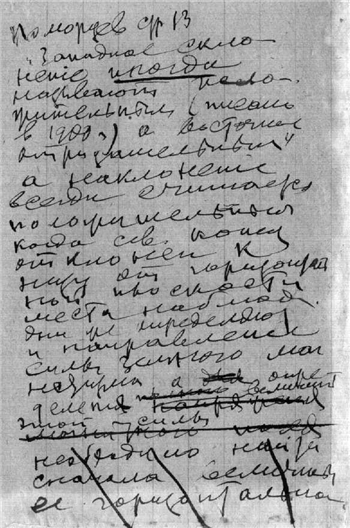 Поморцев стр 13
"Западное скло-
нение иногда
называют поло-
жительным (писано
в 1900 г.) а восточное
отрицательным"
а наклонение
всегда считается
положительным
когда сев. конец
отклонен к
низу от горизонталь
ной плоскости
места наблюд.
и направление
силы земного маг
нетизма а опре
деления величины
этой силы
необходимо найти
сначала величину
ее горизонтальной